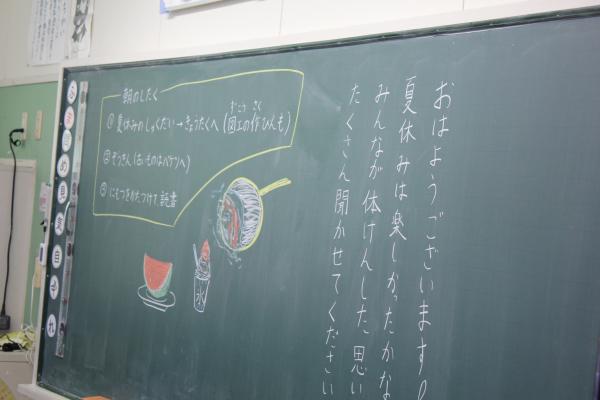 おはようございます!
夏休みは楽しかったかな
みんなが体けんした思い
たくさん聞かせてください
朝のしたく
① 夏休みのしゅくだい→きょうたくへ(図工の作ひんも)
ずこう さく
② ぞうきん(古いものはバケツへ)
③ にもつをかたつけて、読書
氷